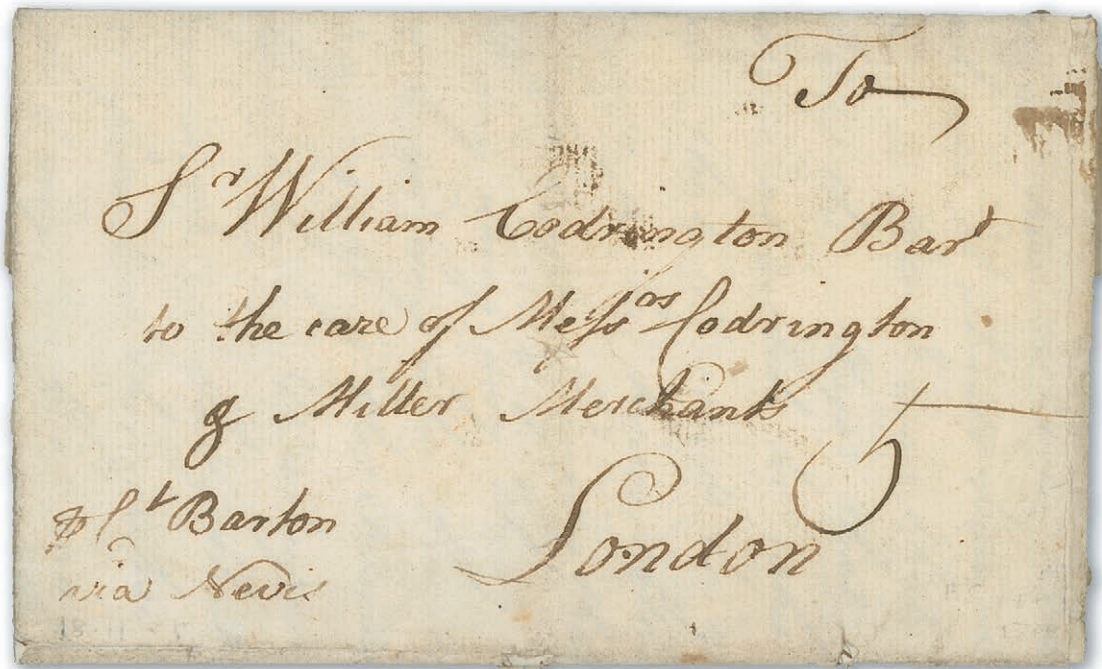 To
Sr William Codrington Bart
to the care of Messrs Codrington
& Miller Merchants
5
London
⅌ Ct Barton
via Nevis